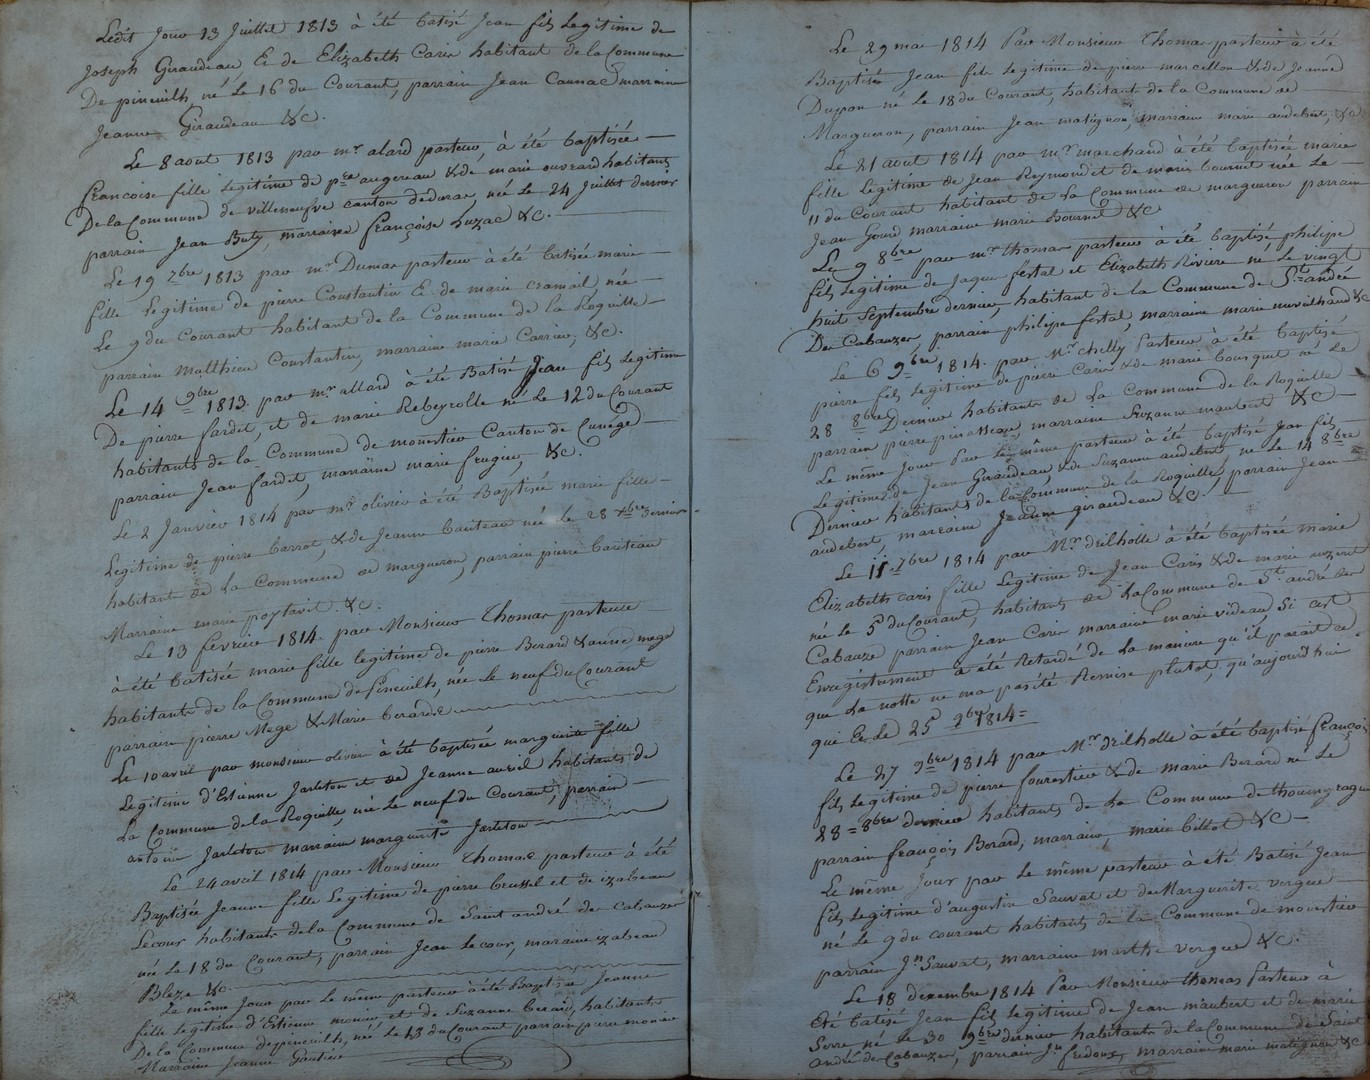 Ledit Jour 13 Juillet 1813 à été batisé Jean fils Legitime de
Joseph Giraudeau E de Elizabeth Caris habitant de la Commune
De pineuilh, né Le 16 du Courant, parrain Jean Cannac marraine
Jeanne Giraudeau &c.
Le 8 aout 1813 par mr alard pasteur, à été baptisée
francoise fille Legitime de pre augereau &de marie ouvrard habitants
De la Commune de villeneufve canton de duras née Le 24 Juillet dernier
parrain Jean Buty, marraine françoise Luzac &c.
Le 19 7bre 1813 par mr Dumas pasteur à été batisée marie
fille Legitime de pierre Constantin E de marie cramail née
Le 9 du Courant habitant de la Commune de la Roquille
parrain Matthieu Constantin, marraine marie Carrier, &c.
Le 14 9bre 1813. par mr. allard à été Batisé Jean fils Legitime
De pierre fardet, et de marie Rebeyrolle né Le 12 du Courant
habitants de la Commune de monestier Canton de Cunége
parrain Jean fardet, marraine marie frugier, &c.
Le 2 Janvier 1814 par mr olivier à été Baptisée marie fille
Legitime de pierre barrot, &de Jeanne bariteau née le 28 xbre dernier
habitants de La Commune de margueron, parrain pierre bariteau
Marraine marie poytavit. &c.
Le 13 fevrier 1814. par Monsieur Thomas pasteur
à été batisée marie fille legitime de pierre Berard &anne mege
habitants de la Commune de Pineuilh, née Le neuf du Courant
parrain pierre Mege &Marie berarde
Le 10 avril par monsieur olivier à été baptisée margueritte fille
Legitime d'Estienne Jarleton et de Jeanne auriel habitants de
La Commune de la Roquille née Le neuf du Courant, parrain
antoine Jarleton marraine margueritte Jarleton
Le 24 avril 1814 par Monsieur Thomas pasteur à été
Baptisée Jeanne fille Legitime de pierre brussel et de izabeau
Lecour habitants de la Commune de Saint andré de cabauzes
née Le 18 du Courant, parrain Jean Lecour, maraine izabeau
Bleze &c.
Le même Jour par le même pasteur à été Baptisée Jeanne
fille Legitime d'Estienne monier et de Suzanne berard, habitants
De la Commune de pineuilh, née Le 13 du Courant parrain pierre monier
Marraine Jeanne Gentier
Le 29 mai 1814 Par Monsieur Thomas pasteur à été
Baptisée Jean fils Legitime de pierre marcellon &de Jeanne
Dupon né Le 18 du Courant, habitant de la Commune de
Margueron, parrain Jean matignon, marraine marie audebert &c
Le 21 aout 1814 par mr marchand à été baptisée marie
fille Legitime de Jean Reymond et de marie bournet née Le
11 du Courant habitant de La Commune de margueron parrain
Jean Gourd marraine marie bournet &c
Le 9 8bre par mr thomas pasteur à été baptisé, philipe
fils Legitime de Jaque fertal et Elizabeth Riviere né Le vingt
huit Septembre dernier, habitant de la Commune de St andré
De Cabauzes, parrain philipe fertal, marraine marie &c
Le 6 9bre 1814. par Mr chelly Pasteur à été baptisé
pierre fils Legitime de pierre Caris &de marie bousquet né Le
28 8bre Dernier habitants de La commune de la Roquille
parrain pierre marraine Suzanne maubert &c
Le même Jour Par Le même pasteur à été baptisé Jean fils
Legitime de Jean Giraudeau &de Suzanne audebert, né Le 14 8bre
Dernier habitans de la Commune de la Roquille, parrain Jean
audebert, marraine Jeanne giraudeau &c
Le 11 7bre 1814 par Mr drilholle à été baptisée marie
Elizabeth caris fille Legitime de Jean Caris &de marie
née Le 5 du Courant, habitants de La Commune de St andré de
Cabauze parrain Jean Caris marraine marie videau, Si cet
Enregistrement à été Retardé de La maniere qu'il parait c'est
que La notte ne m'a pas été Remise plutot, qu'aujourd'hui
qui E. Le 25 9bre 1814
Le 27 9bre 1814 par Mr drilholle à été baptisé françois
fils Legitime de pierre fourestier &de Marie Berard né Le
28 8bre dernier habitants de La Commune de thoumeyragues
parrain françois Berard, marraine marie billot &c
Le même Jour par Le même pasteur à été Batisé Jean
fils Legitime d'augustin Sauvat et de Marguerite vergue
né Le 9 du courant habitants de la Commune de monestier
parrain Jn Sauvat, marraine marthe vergue &c.
Le 18 decembre 1814 Par Monsieur thomas Pasteur à
Eté batisé Jean fils Legitime de Jean maubert et de marie
Serre né Le 30 9bre dernier habitants de La Commune de Saint
André de Cabauzes, parrain Jn fredoux, marraine marie matignon &c